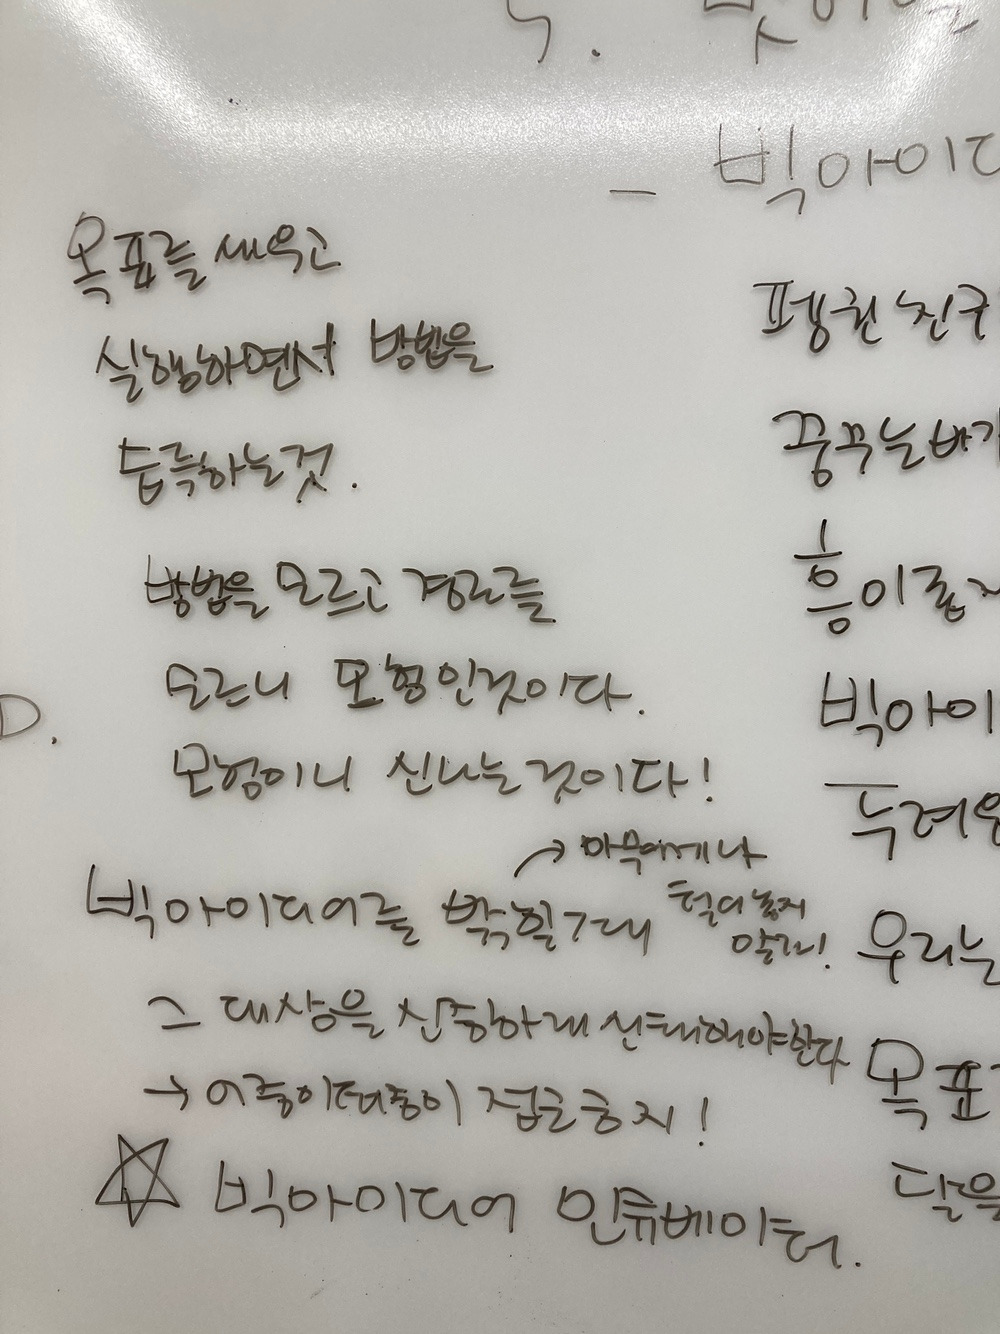 - 빅아이디
목표를 세우고
실행하면서 방법을
습득하는것.
방법을 모르고 경로를
모르니 모험인것이다.
모험이니 신나는것이다!
→ 아무에게나
털어놓지
말라!
빅아이디어를 밝힐거래
그 대상을 신중하게 선택해야한다
→ 어중이떠중이 접근금지!
☆ 빅아이디어 인큐베이터.
D.
펭귄 친구
꿈꾸는바
흥이
빅아이
두려운
우리는
목표
달은